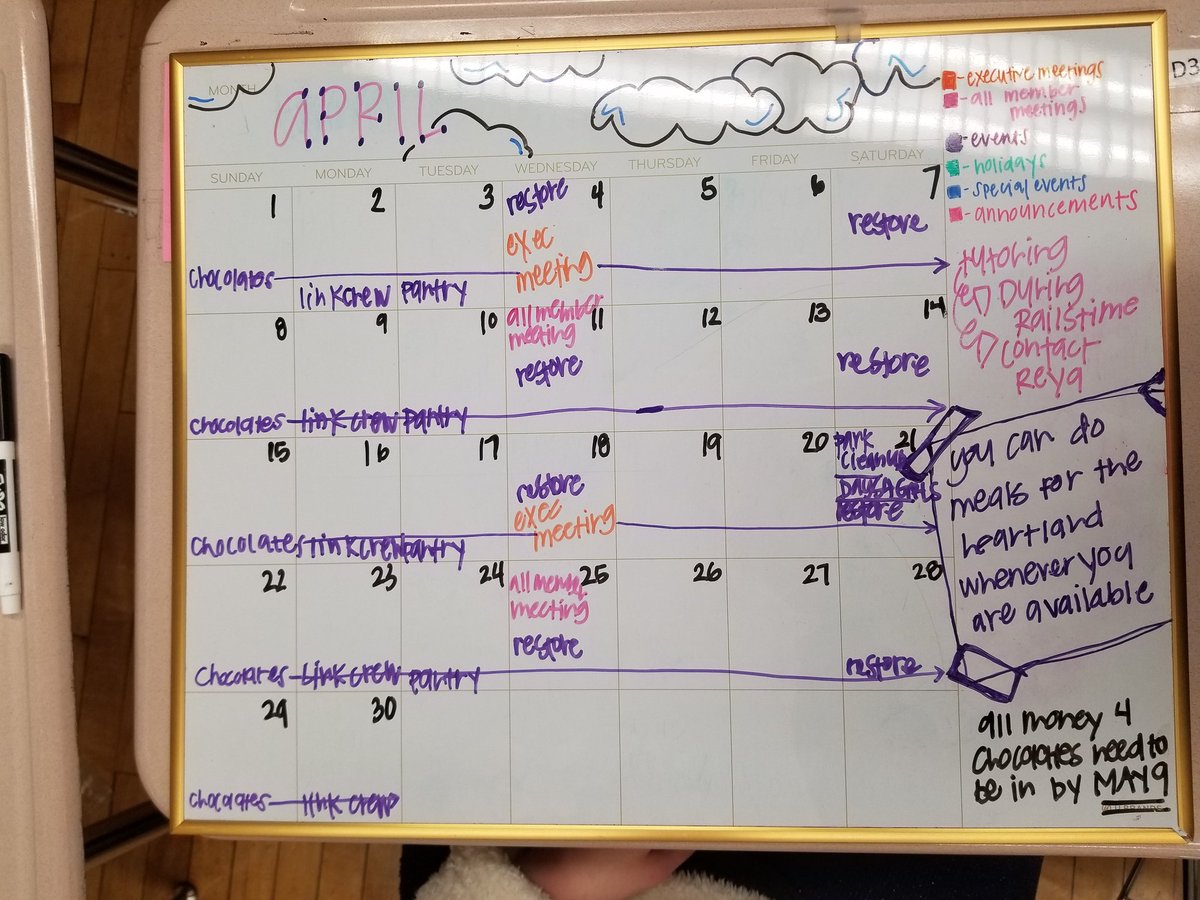 MONTH
APRIL
SUNDAY MONDAY TUESDAY WEDNESDAY THURSDAY FRIDAY SATURDAY
1 2 3 restore 4 5 6 7
restore
exec
meeting
chocolates
link crew pantry
8 9 10 all member 11 12 13 14
meeting
restore restore
chocolates link crew pantry
15 16 17 18 19 20 park 21
cleanup
restore
exec restore
meeting
chocolates link crew pantry
22 23 24 all member 25 26 27 28
meeting
restore
chocolates link crew pantry restore
29 30
chocolates link crew
- executive meetings
- all member
meetings
- events
- holidays
- special events
- announcements
tutoring
During
Railstime
contact
REYA
you can do
meals for the
heartland
whenever you
are available
all money 4
chocolates need to
be in by MAY 9
D3